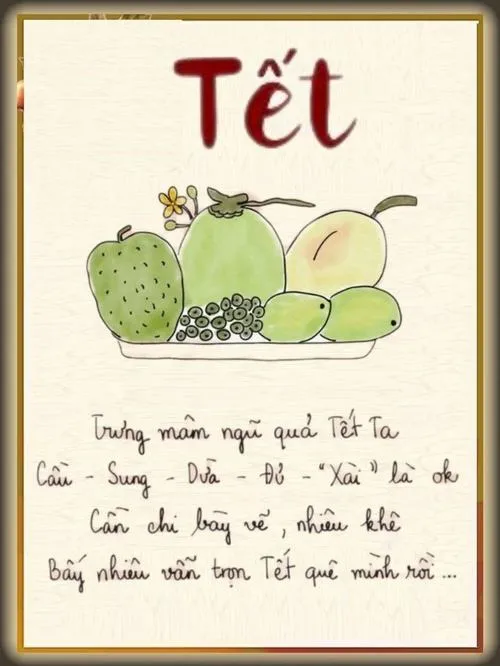 Tết
Trưng mâm ngũ quả Tết Ta
Cầu - Sung - Dừa - Đủ - "Xài" là ok
Cần chi bày vẽ, nhiêu khê
Bấy nhiêu vẫn trọn Tết quê mình rồi...